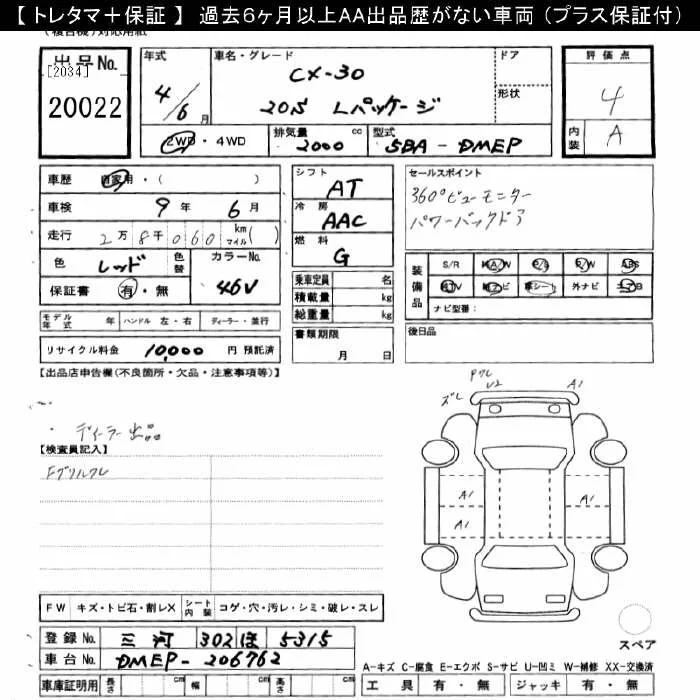 【 トレタマ＋保証 】 過去６ヶ月以上ＡＡ出品歴がない車両（プラス保証付）
出品No.
[2034]
20022
年式
4/6月
車名・グレード
CX-30
20S Lパッケージ
ドア
形状
評価点
4
内装 A
2WD・4WD
排気量 2000 cc
型式 5BA-DMEP
車歴 自家用・( )
車検 9年 6月
走行 2万8千060 km マイル( )
色 レッド 色替
カラーNo. 46V
保証書 有・無
シフト AT
冷房 AAC
燃料 G
セールスポイント
360°ビューモニター
パワーバックドア
乗車定員 名
積載量 kg
総重量 kg
書類期限
月 日
装備品 S/R A/W P/S P/W ABS
TV ナビ 革シート 外ナビ エアB
ナビ型番：
後日品
モデル年式 年 ハンドル 左・右 ディーラー・並行
リサイクル料金 10,000 円 預託済
【出品店申告欄(不良箇所・欠品・注意事項等)】
・ディーラー出品
【検査員記入】
Fグリルワレ
ズレ
Pワレ
U2
A1
A1
A1
A1
FW キズ・トビ石・割レX シート内装 コゲ・穴・汚レ・シミ・破レ・スレ
スペア
登録No. 三河 302 ほ 5315
車台No. DMEP-206762
車庫証明用 長さ cm 幅 cm 高さ cm
A－キズ C－腐食 E－エクボ S－サビ U－凹ミ W－補修 XX－交換済
工具 有・無 ジャッキ 有・無